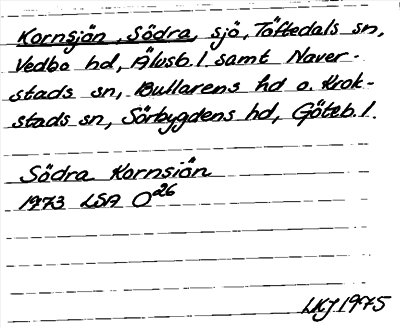 Kornsjön, Södra, sjö, Töftedals sn,
Vedbo hd, Älvsb. l. samt Naver-
stads sn, Bullarens hd o. Krok-
stads sn, Sörbygdens hd, Göteb. l.
Södra Kornsjön
1973 LSA O26
LKJ 1975